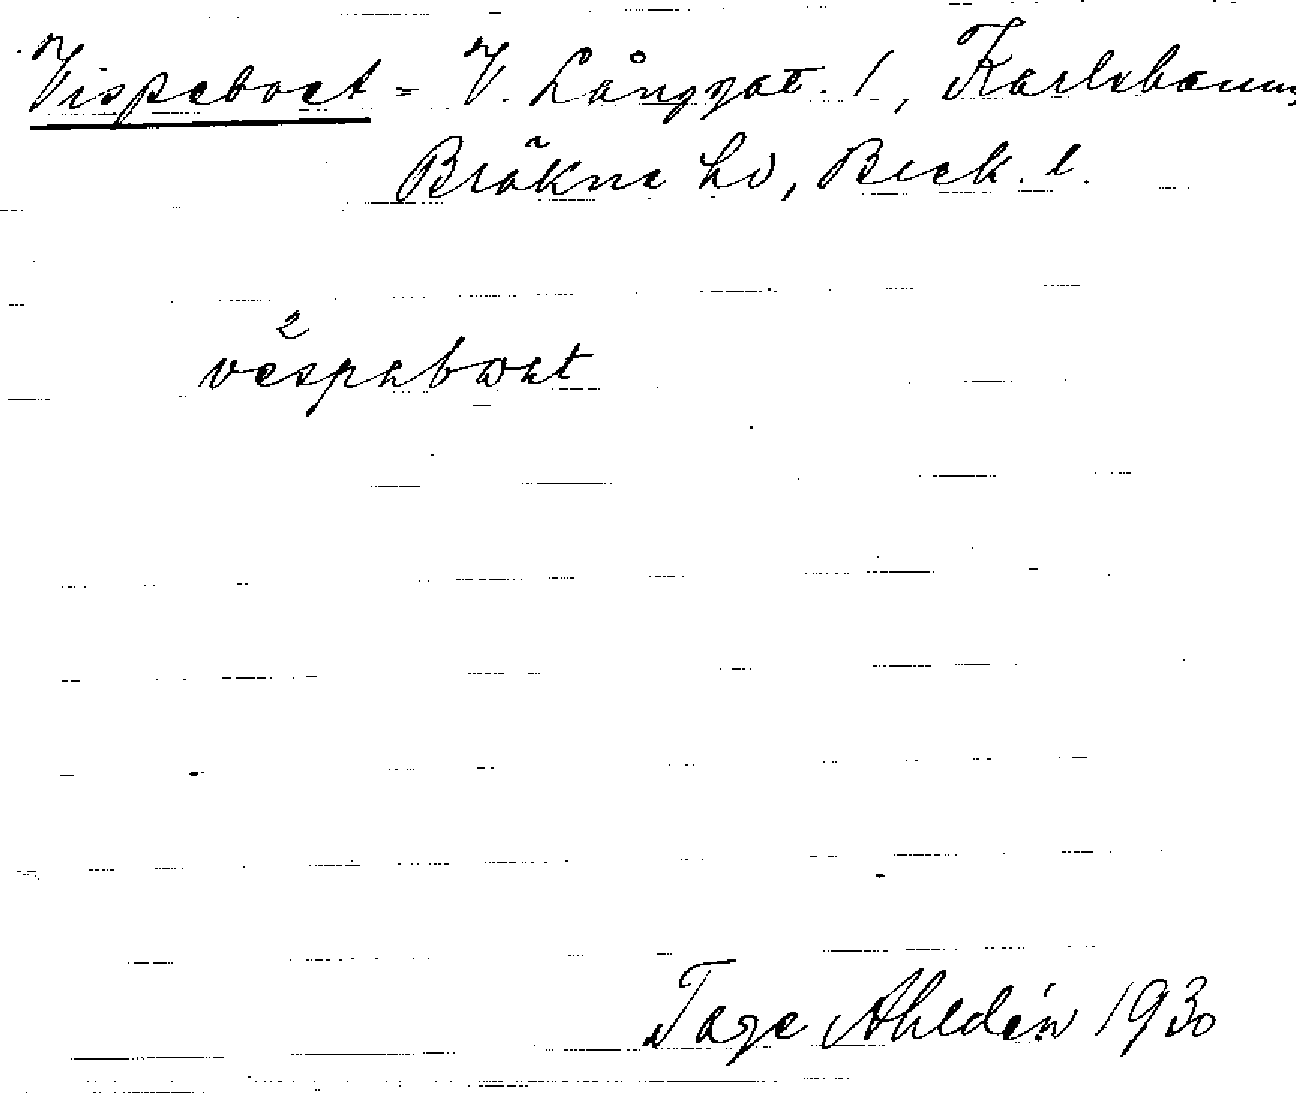 Vispeboet = V. Långgat. 1, Karlshamn,
Bräkne hd, Bleck. l.
2
vespeboet
Tage Ahldén 1930